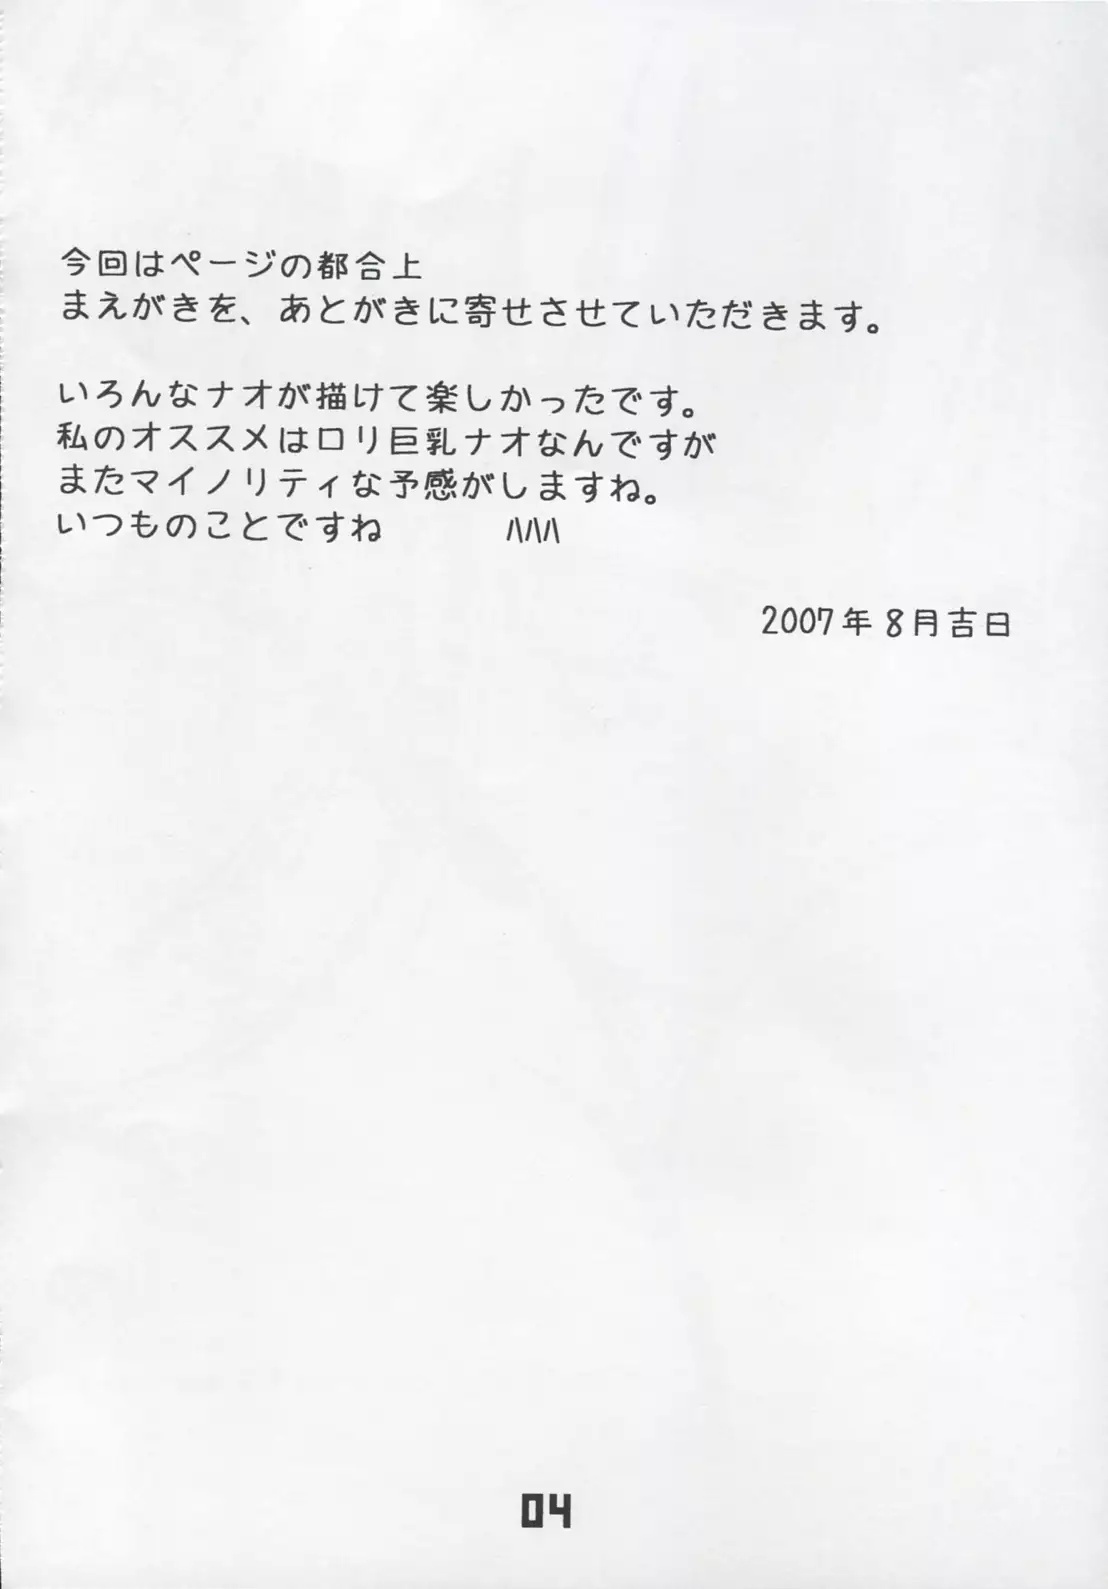 今回はページの都合上
まえがきを、あとがきに寄せさせていただきます。
いろんなナオが描けて楽しかったです。
私のオススメはロリ巨乳ナオなんですが
またマイノリティな予感がしますね。
いつものことですね ハハハ
2007年8月吉日
04